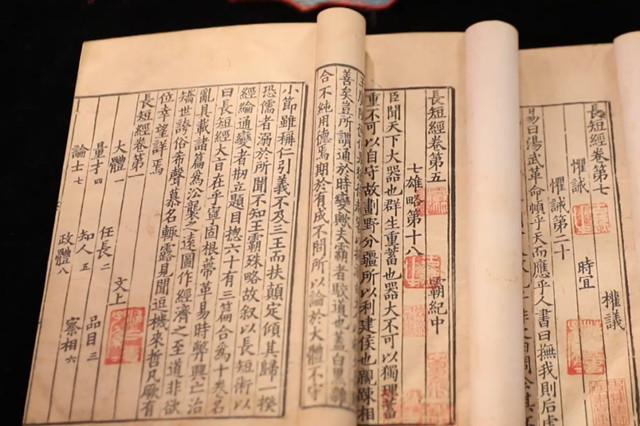 善矣豈所謂通於時變歟夫霸者駁道也蓋白黑雜
合不純用德焉期於有成不問所以論於大體不守
小節雖稱仁引義不及三王而扶顛定傾其歸一揆
恐儒者溺於所聞不知王霸殊略故叙以長短術以
經綸通變者刱立題目總六十有三篇合為十卷名
曰長短經大旨在乎寧固根蒂革易時弊興亡治
亂具載諸篇為公襲之遠圖作經濟之至道非欲
矯世誇俗希聲慕名輒露見聞逗機來哲凡厥有
位幸望詳焉
長短經卷第
文上
大體一 任長二 品目三
量才四 知人五 察相六
論士七 政體八
長短經卷第五
霸紀中
七雄略第十八
臣聞天下大器也群生重蓄也器大不可以獨理蓄
重不可以自守故劃野分疆所以利建侯也親疎相
長短經卷第七
權議
懼誡 時宜
懼誡第二十
易曰湯武革命順乎天而應乎人書曰撫我則后虐